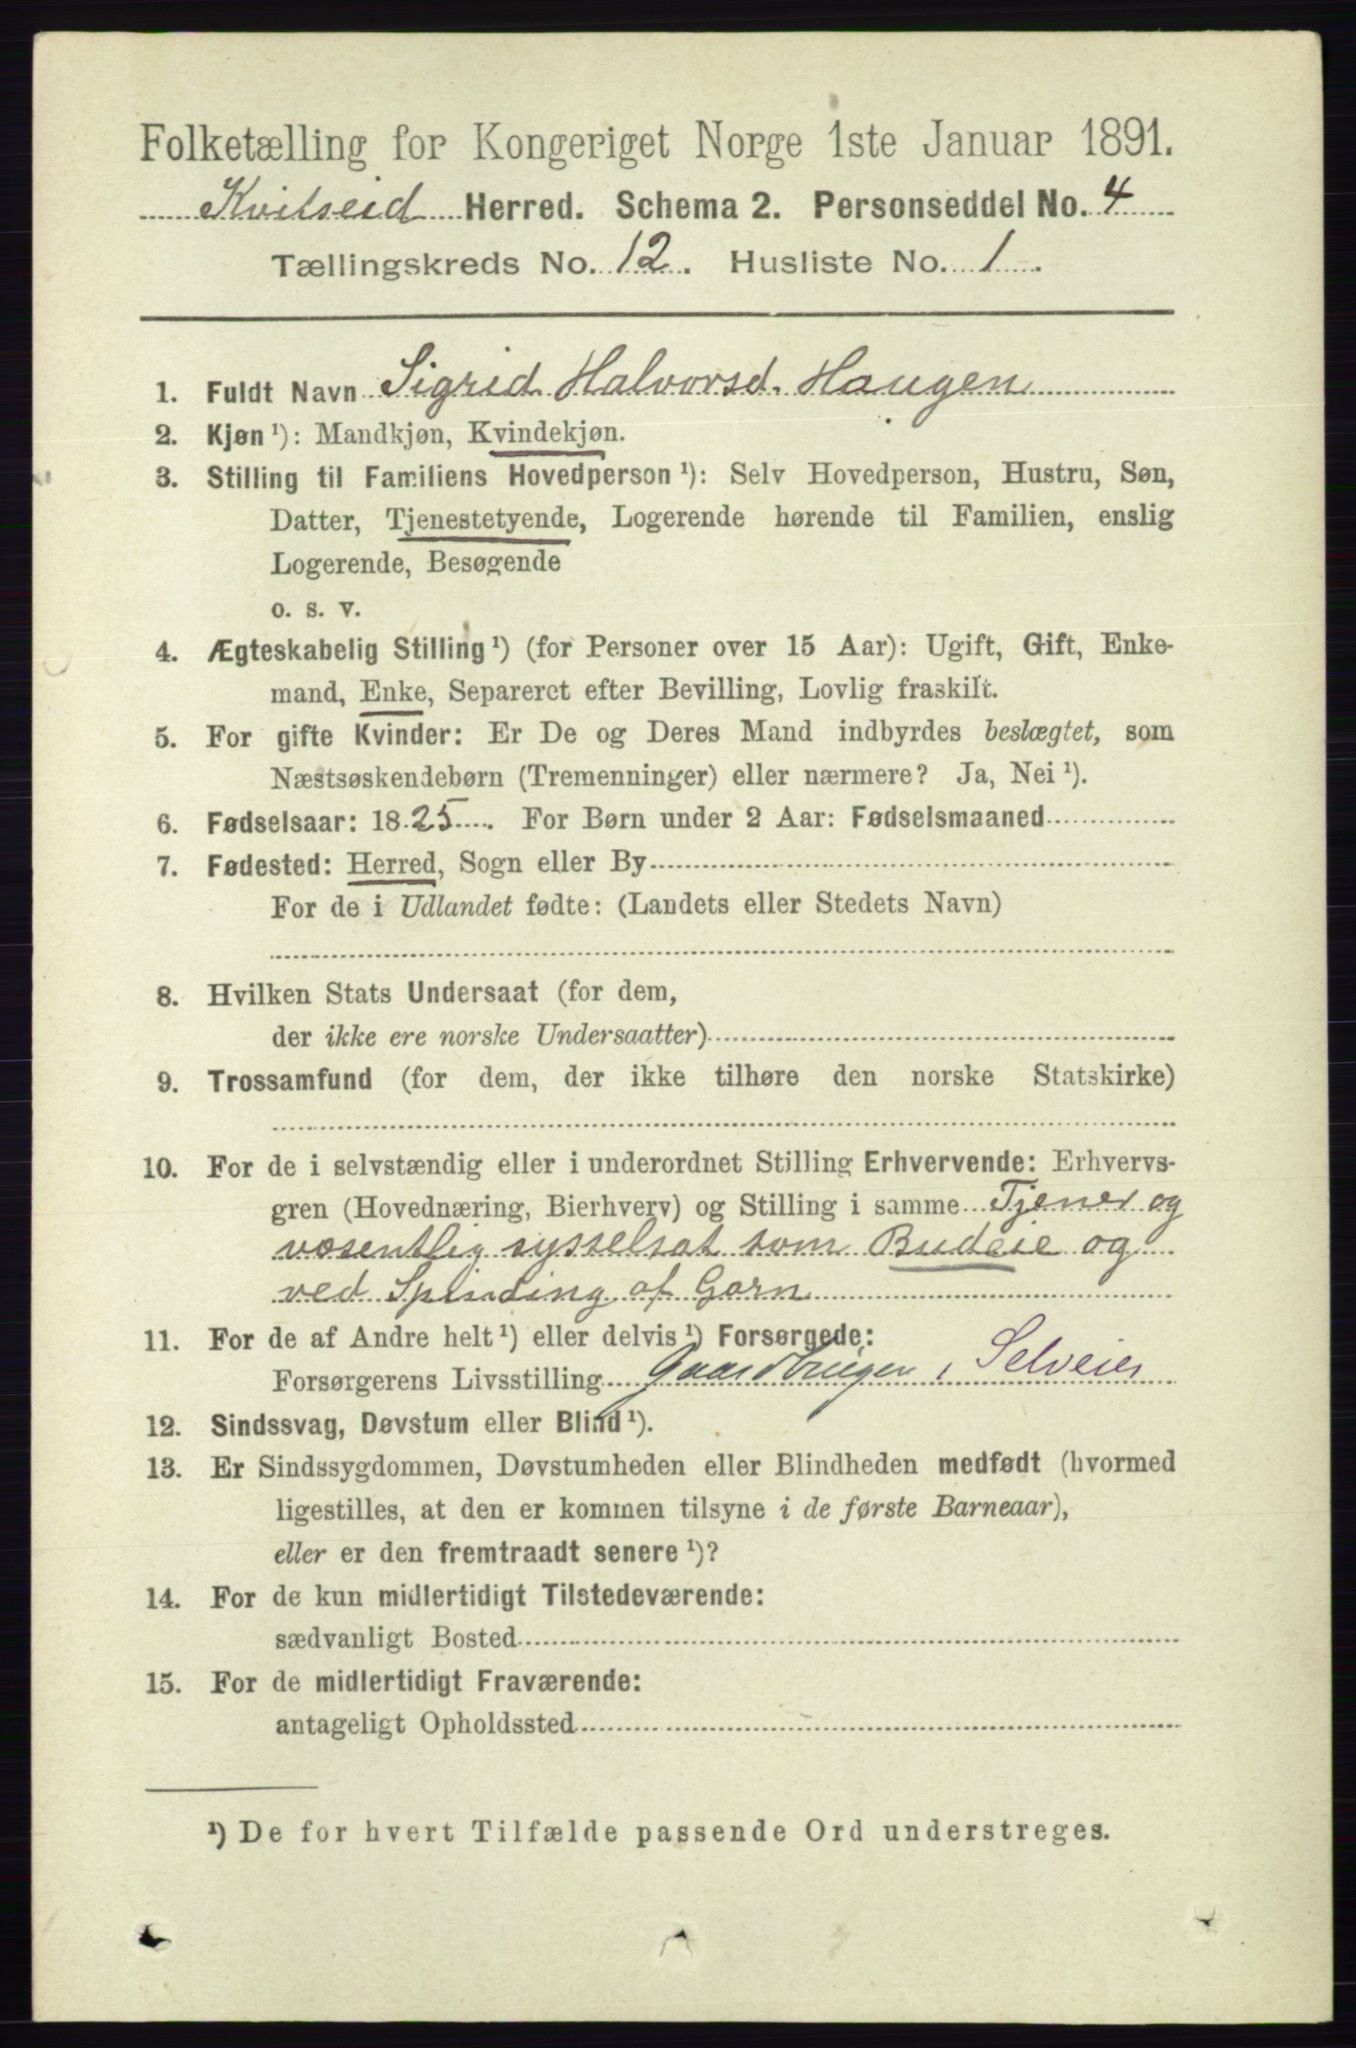 Folketælling for Kongeriget Norge 1ste Januar 1891.
Kvitseid Herred. Schema 2. Personseddel No. 4
Tællingskreds No. 12. Husliste No. 1.
1. Fuldt Navn Sigrid Halvorsd. Haugen
2. Kjøn ¹): Mandkjøn, Kvindekjøn.
3. Stilling til Familiens Hovedperson ¹): Selv Hovedperson, Hustru, Søn,
Datter, Tjenestetyende, Logerende hørende til Familien, enslig
Logerende, Besøgende
o. s. v.
4. Ægteskabelig Stilling ¹) (for Personer over 15 Aar): Ugift, Gift, Enke-
mand, Enke, Separeret efter Bevilling, Lovlig fraskilt.
5. For gifte Kvinder: Er De og Deres Mand indbyrdes beslægtet, som
Næstsøskendebørn (Tremenninger) eller nærmere? Ja, Nei ¹).
6. Fødselsaar: 1825. For Børn under 2 Aar: Fødselsmaaned
7. Fødested: Herred, Sogn eller By
For de i Udlandet fødte: (Landets eller Stedets Navn)
8. Hvilken Stats Undersaat (for dem,
der ikke ere norske Undersaatter)
9. Trossamfund (for dem, der ikke tilhøre den norske Statskirke)
10. For de i selvstændig eller i underordnet Stilling Erhvervende: Erhvervs-
gren (Hovednæring, Bierhverv) og Stilling i samme Tjener og
væsentlig sysselsat som Budeie og
ved Spinding af Garn
11. For de af Andre helt ¹) eller delvis ¹) Forsørgede:
Forsørgerens Livsstilling Gaardbruger, Selveier
12. Sindssvag, Døvstum eller Blind ¹).
13. Er Sindssygdommen, Døvstumheden eller Blindheden medfødt (hvormed
ligestilles, at den er kommen tilsyne i de første Barneaar),
eller er den fremtraadt senere ¹)?
14. For de kun midlertidigt Tilstedeværende:
sædvanligt Bosted
15. For de midlertidigt Fraværende:
antageligt Opholdssted
¹) De for hvert Tilfælde passende Ord understreges.